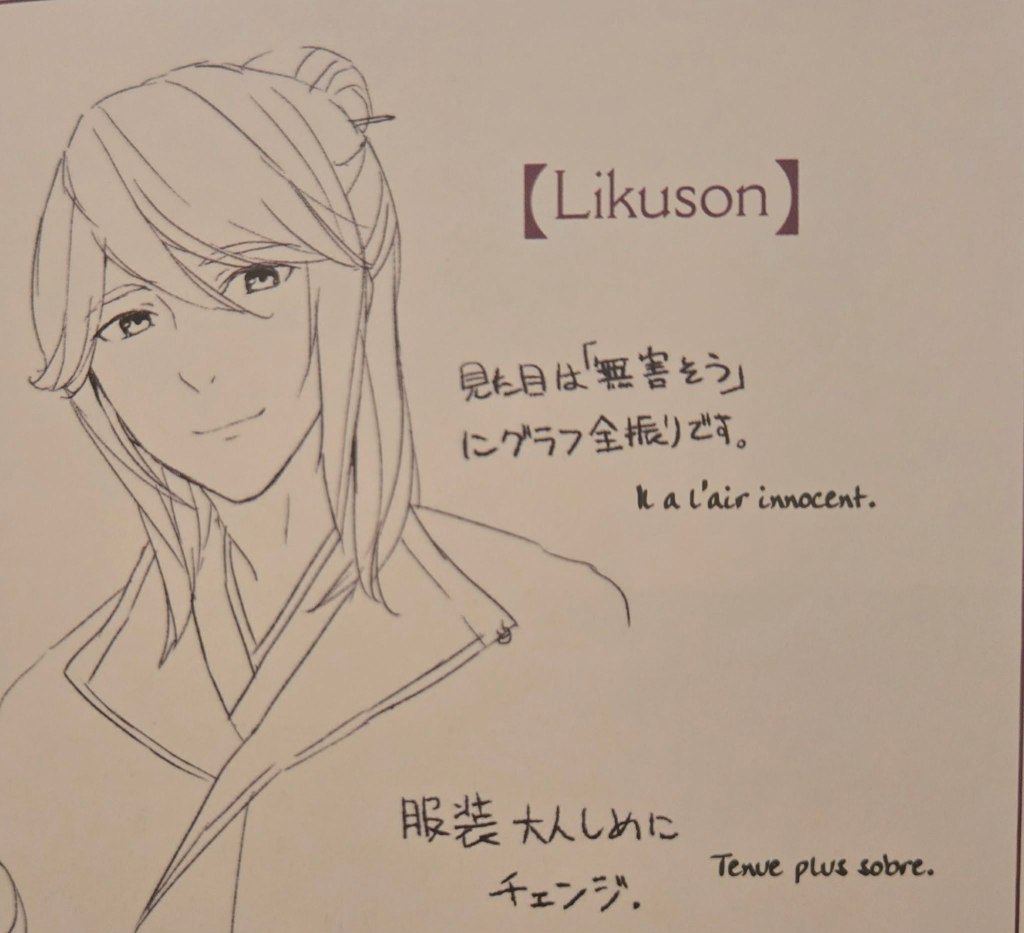 【Likuson】
見た目は「無害そう」
にグラフ全振りです。
Il a l'air innocent.
服装 大人しめに
チェンジ.
Tenue plus sobre.